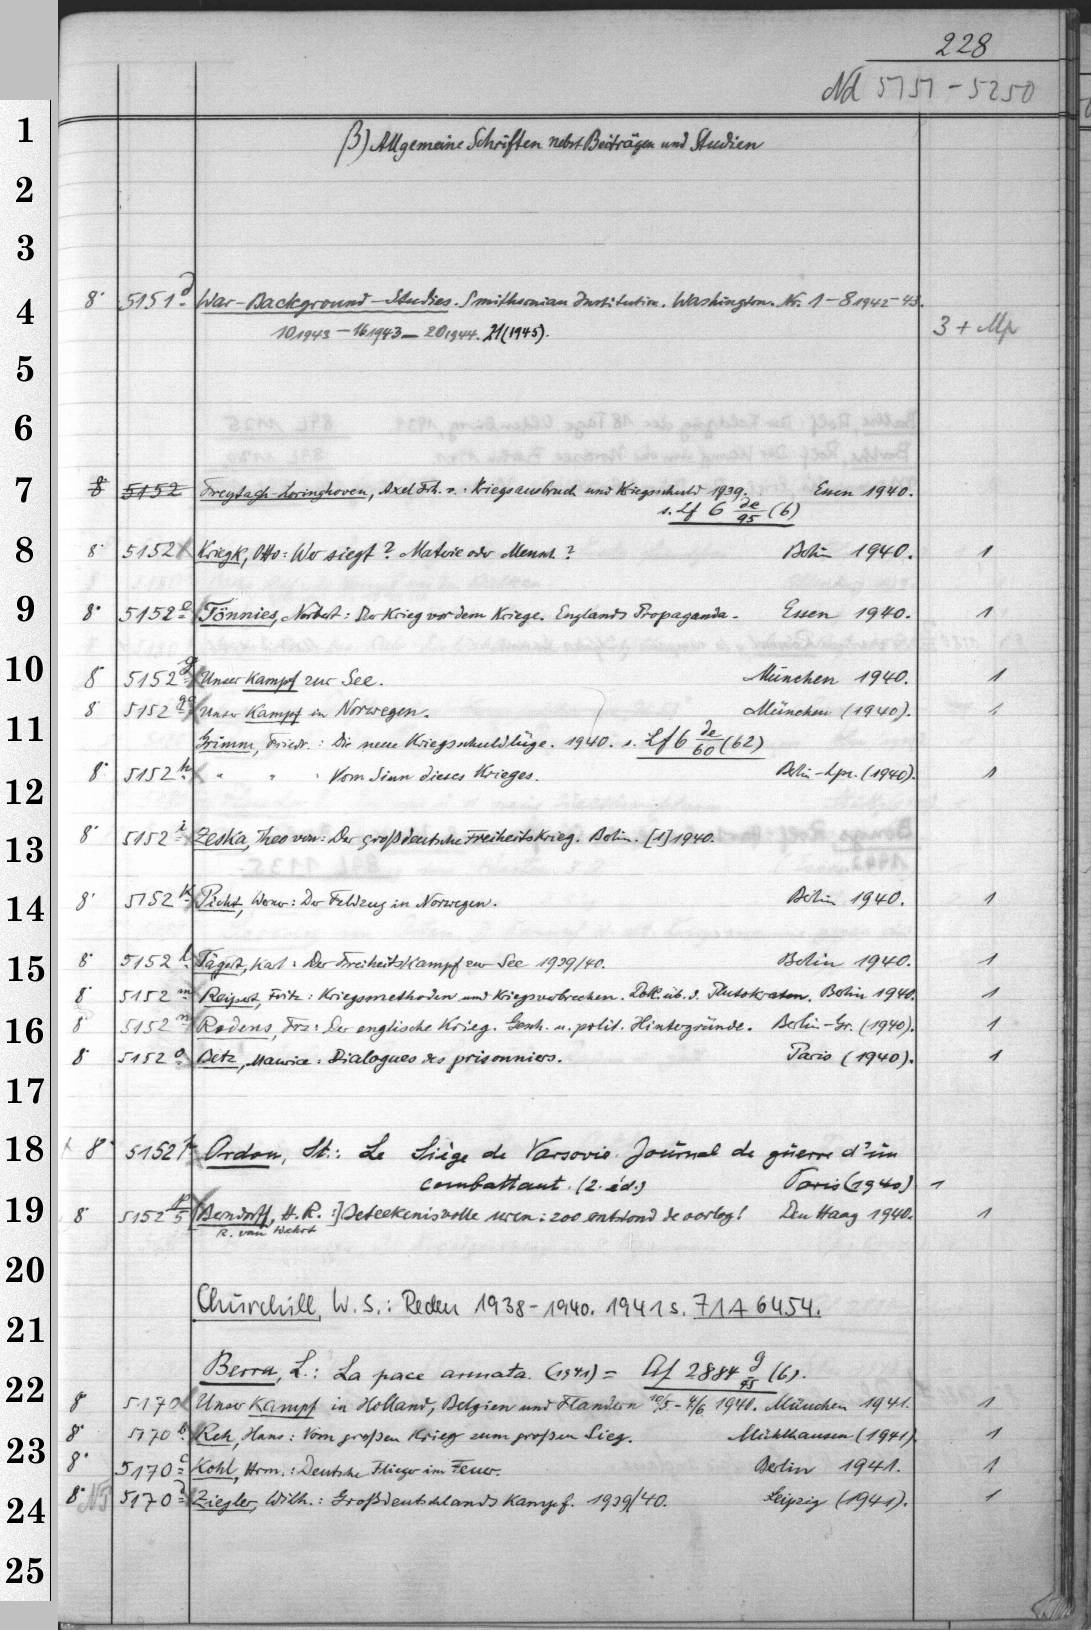 228
Nd 5151-5250
β) Allgemeine Schriften nebst Beiträgen und Studien
8° 5151 d War-Background-Studies. Smithsonian Institution. Washington. Nr. 1-8 1942-43.
10 1943 - 16 1943 - 20 1944. 21 (1945). 3 + Mp
8 5152 Freytagh-Loringhoven, Axel Frh. v.: Kriegsausbruch und Kriegsschuld 1939. Essen 1940.
s. Lf 6 de/95 (6)
8° 5152 Kriegk, Otto: Wer siegt? Materie oder Mensch? Berlin 1940. 1
8° 5152 a Tönnies, Norbert: Der Krieg vor dem Kriege. Englands Propaganda. Essen 1940. 1
8° 5152 g Unser Kampf zur See. München 1940. 1
8° 5152 gg Unser Kampf in Norwegen. München (1940).
Grimm, Friedr.: Die neue Kriegsschuldlüge. 1940. s. Lf 6 de/60 (62)
8° 5152 h " " " Vom Sinn dieses Krieges. Berlin-Lpz. (1940). 1
8° 5152 i Zeska, Theo von: Der großdeutsche Freiheitskrieg. Berlin. [1] 1940.
8° 5152 k Picht, Werner: Der Feldzug in Norwegen. Berlin 1940. 1
8° 5152 l Tägert, Karl: Der Freiheitskampf zur See 1939/40. Berlin 1940. 1
8° 5152 m Reipert, Fritz: Kriegsmethoden und Kriegsverbrechen. Dok. üb. d. Plutokraten. Berlin 1940. 1
8° 5152 n Rodens, Frz: Der englische Krieg. Gesch. u. polit. Hintergründe. Berlin-Gr. (1940). 1
8° 5152 o Betz, Maurice: Dialogues des prisonniers. Paris (1940). 1
8° 5152 Ordon, St.: Le Siège de Varsovie. Journal de guerre d'un
combattant. (2. éd.) Paris (1940) 1
8° 5152 p/5 [Berndorff, H. R.:] Beteekenisvolle uren: zoo ontstond de oorlog! Den Haag 1940. 1
R. van Wehrt
Churchill, W. S.: Reden 1938-1940. 1941 s. 71 A 6454.
Berra, L.: La pace armata. (1941) = Af 2884 g/95 (6).
8° 5170 Unser Kampf in Holland, Belgien und Flandern 10/5-4/6 1940. München 1941. 1
8° 5170 b Reh, Hans: Vom großen Krieg zum großen Sieg. Mühlhausen (1941). 1
8° 5170 c Kohl, Herm.: Deutsche Flieger im Feuer. Berlin 1941. 1
8° 5170 d Ziegler, Wilh.: Großdeutschlands Kampf. 1939/40. Leipzig (1941). 1
1
2
3
4
5
6
7
8
9
10
11
12
13
14
15
16
17
18
19
20
21
22
23
24
25